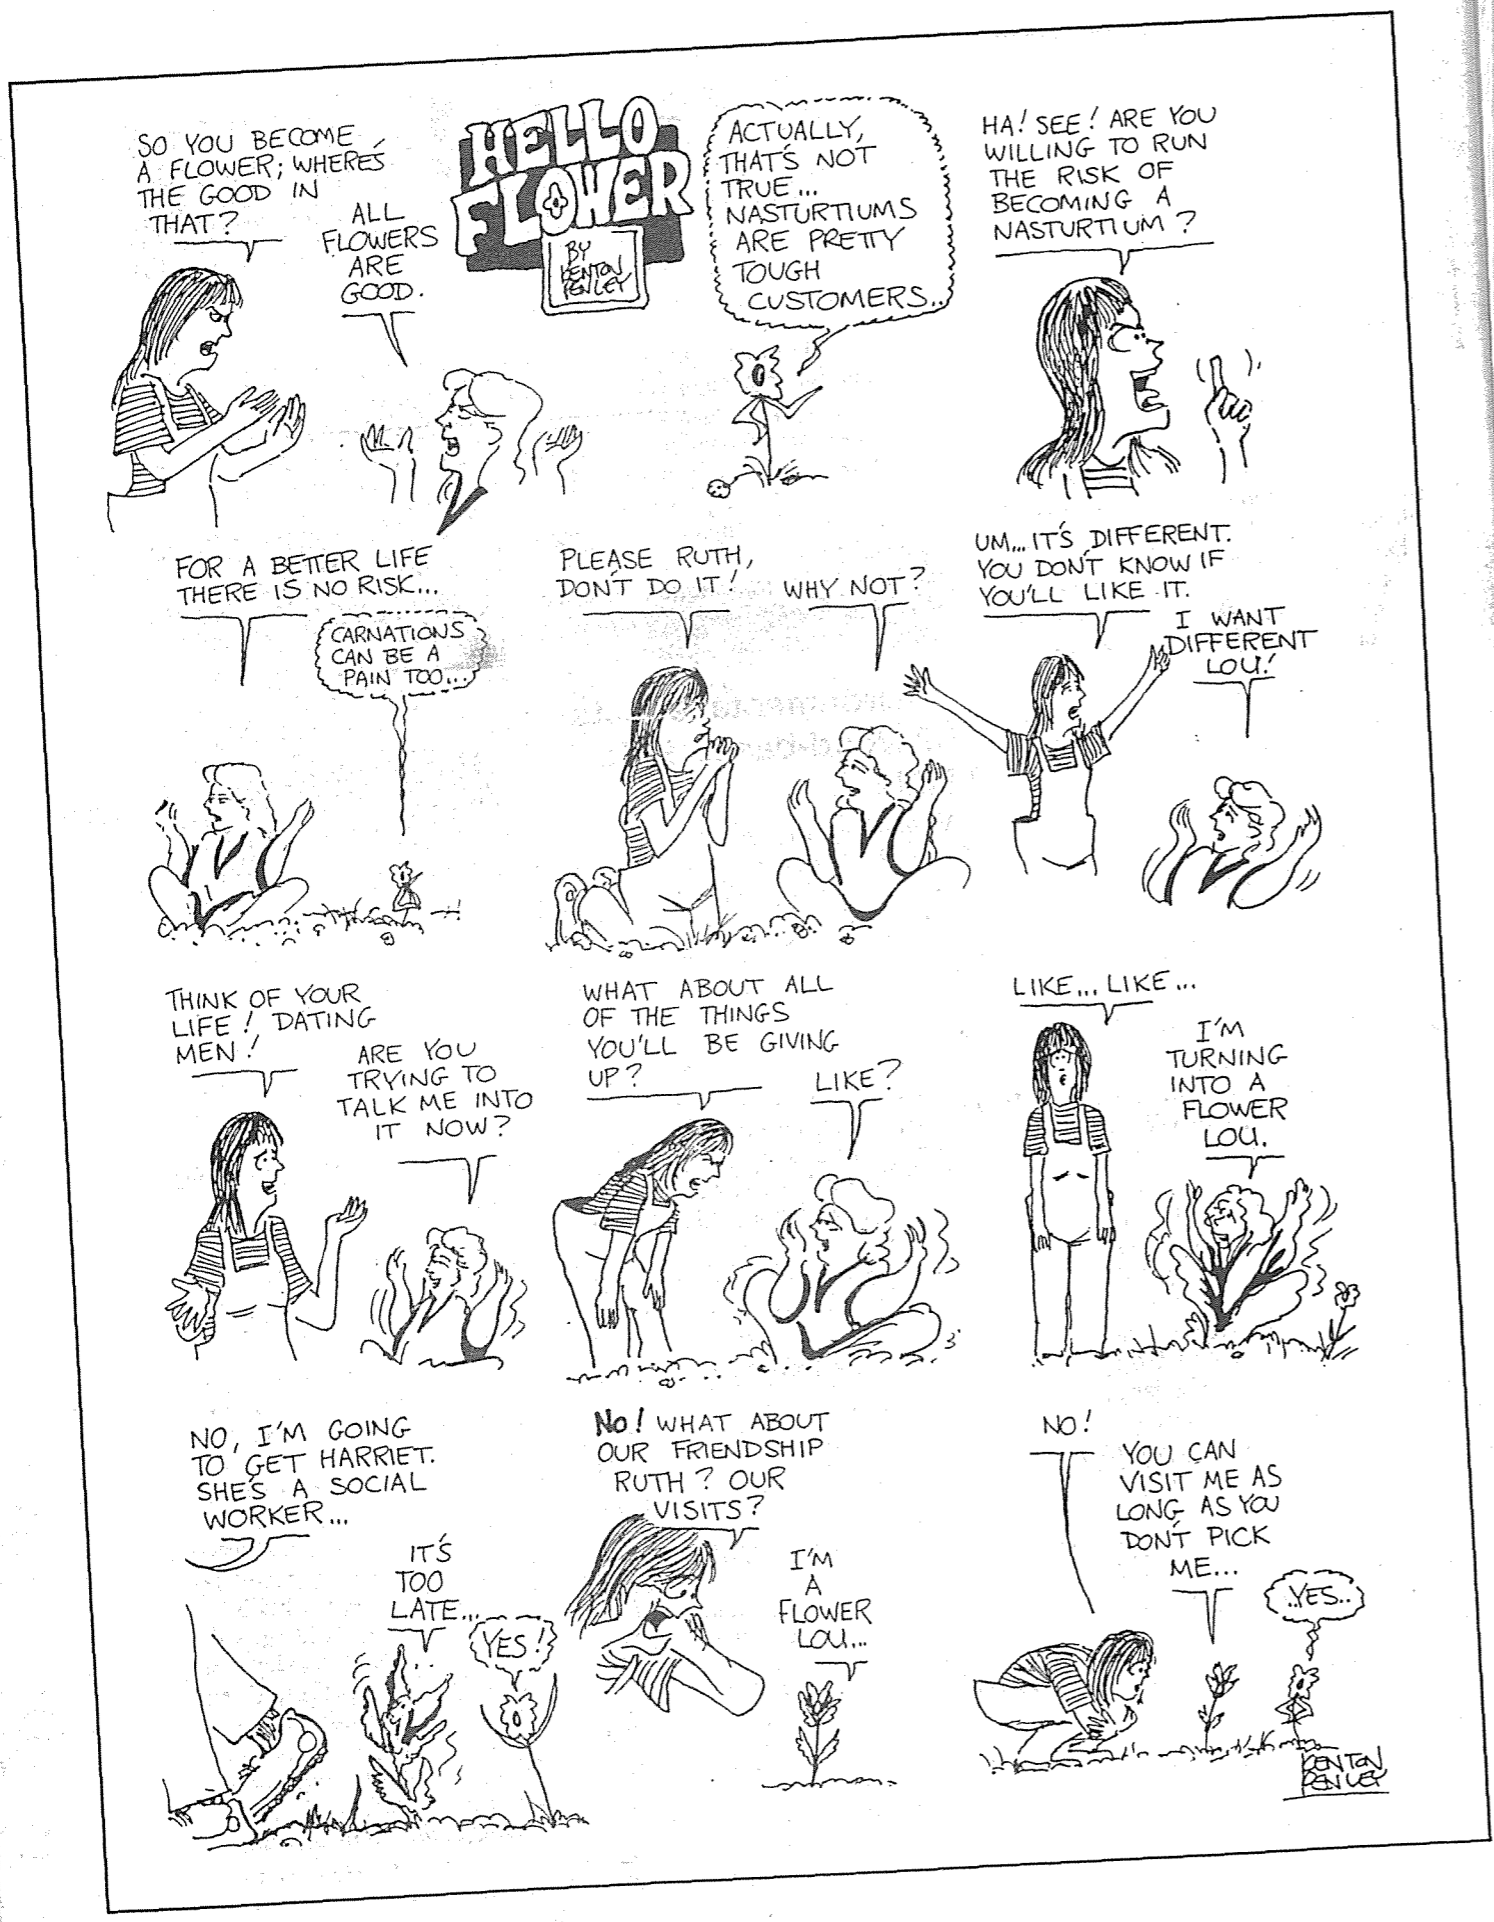 SO YOU BECOME
A FLOWER; WHERE'S
THE GOOD IN
THAT?
ALL
FLOWERS
ARE
GOOD.
HELLO
FLOWER
BY
KENTON
PENLEY
ACTUALLY,
THAT'S NOT
TRUE...
NASTURTIUMS
ARE PRETTY
TOUGH
CUSTOMERS..
HA! SEE! ARE YOU
WILLING TO RUN
THE RISK OF
BECOMING A
NASTURTIUM?
FOR A BETTER LIFE
THERE IS NO RISK...
CARNATIONS
CAN BE A
PAIN TOO...
PLEASE RUTH,
DON'T DO IT!
WHY NOT?
UM... IT'S DIFFERENT.
YOU DON'T KNOW IF
YOU'LL LIKE IT.
I WANT
DIFFERENT
LOU!
THINK OF YOUR
LIFE! DATING
MEN!
ARE YOU
TRYING TO
TALK ME INTO
IT NOW?
WHAT ABOUT ALL
OF THE THINGS
YOU'LL BE GIVING
UP?
LIKE?
LIKE... LIKE...
I'M
TURNING
INTO A
FLOWER
LOU.
NO, I'M GOING
TO GET HARRIET.
SHE'S A SOCIAL
WORKER...
IT'S
TOO
LATE...
YES!
NO! WHAT ABOUT
OUR FRIENDSHIP
RUTH? OUR
VISITS?
I'M
A
FLOWER
LOU...
NO!
YOU CAN
VISIT ME AS
LONG AS YOU
DON'T PICK
ME...
..YES..
KENTON
PENLEY